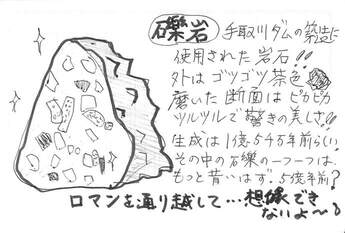 礫岩
手取川ダムの築造に
使用された岩石!!
外はゴツゴツ茶色
磨いた断面はピカピカ
ツルツルで驚きの美しさ!!
生成は1億5千万年前らしい
その中の石礫の一つ一つは、
もっと昔いはず。5億年前?
ロマンを通り越して…想像でき
ないよ〜